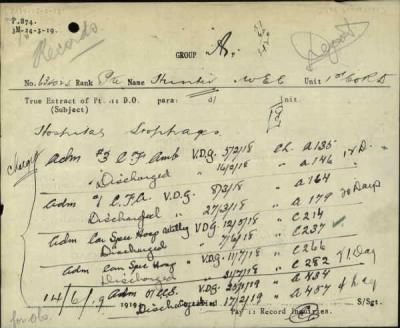 P.874.
3M-24-3-19.
Records
GROUP A.
Deposit
No. Rank Pte Name Hunter W E C Unit 1st C.O.R.D.
True Extract of Pt. 11 D.O. para: d/ init.
(Subject)
Hospital Stoppages
Charged
Adm #3 C F Amb V.D.G. 5/2/18 Ch. A 135
Discharged " 16/2/18 " A 146 12 D.
Adm #1 C.F.A. V.D.G. 8/3/18 A 164
Discharged " 27/3/18 " A 179 20 Days
Adm Can Spec Hosp Witley V.D.G. 12/5/18 " C 214
Discharged " 7/6/18 " C 237
Adm Can Spec Hosp V.D.G. 11/7/18 " C 266
Discharged " 31/7/18 " C 282 21 Day
14/6/19 Adm V.D.S. " A 434
1919 Discharged 17/2/19 " A 437 4 Day
S/Sgt.
Pay 11 Record Inquiries.